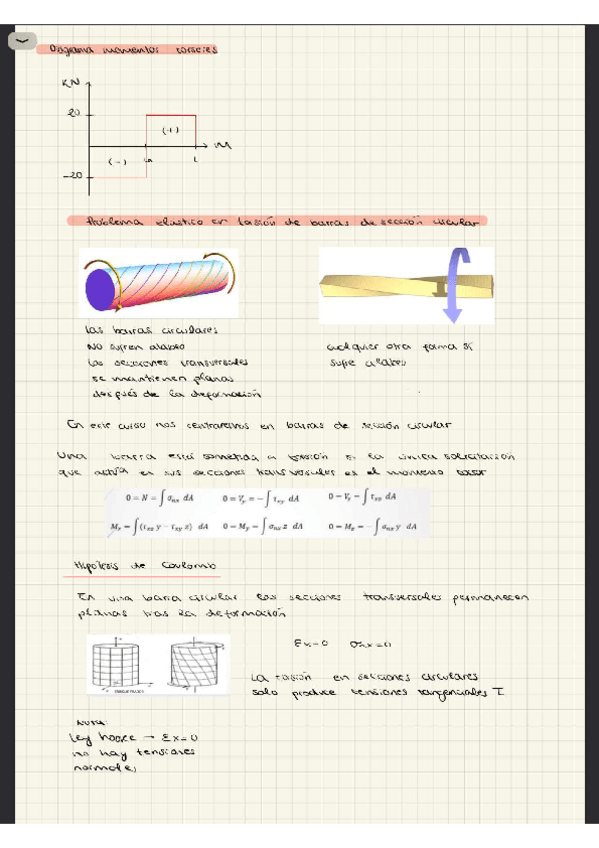 Diagrama momentos torsores
KN
20
(+)
M
(-)
L
-20
Problema elástico en tosión de barras de sección circular
Las barras circulares
NO sufren alabeo
Las secciones transversales
se mantienen planas
después de la deformación
cualquier otra forma si
sufre alabeo
En este curso nos centraremos en barras de sección circular
Una barra está sometida a torsión si la única solicitación
que actúa en sus secciones transversales es el momento torsor
0 = N = ∫ σnx dA 0 = Vy = − ∫ τxy dA 0 = Vz − ∫ τxz dA
Mx = ∫ (τxz y − τxy z) dA 0 = My = ∫ σnx z dA 0 = Mz = − ∫ σnx y dA
Hipótesis de Coulomb
En una barra circular las secciones transversales permanecen
planas tras la deformación
Ex=0 σnx=0
La tosión en secciones circulares
solo produce tensiones tangenciales τ
NOTA:
Ley hooke → Ex=0
no hay tensiones
normales